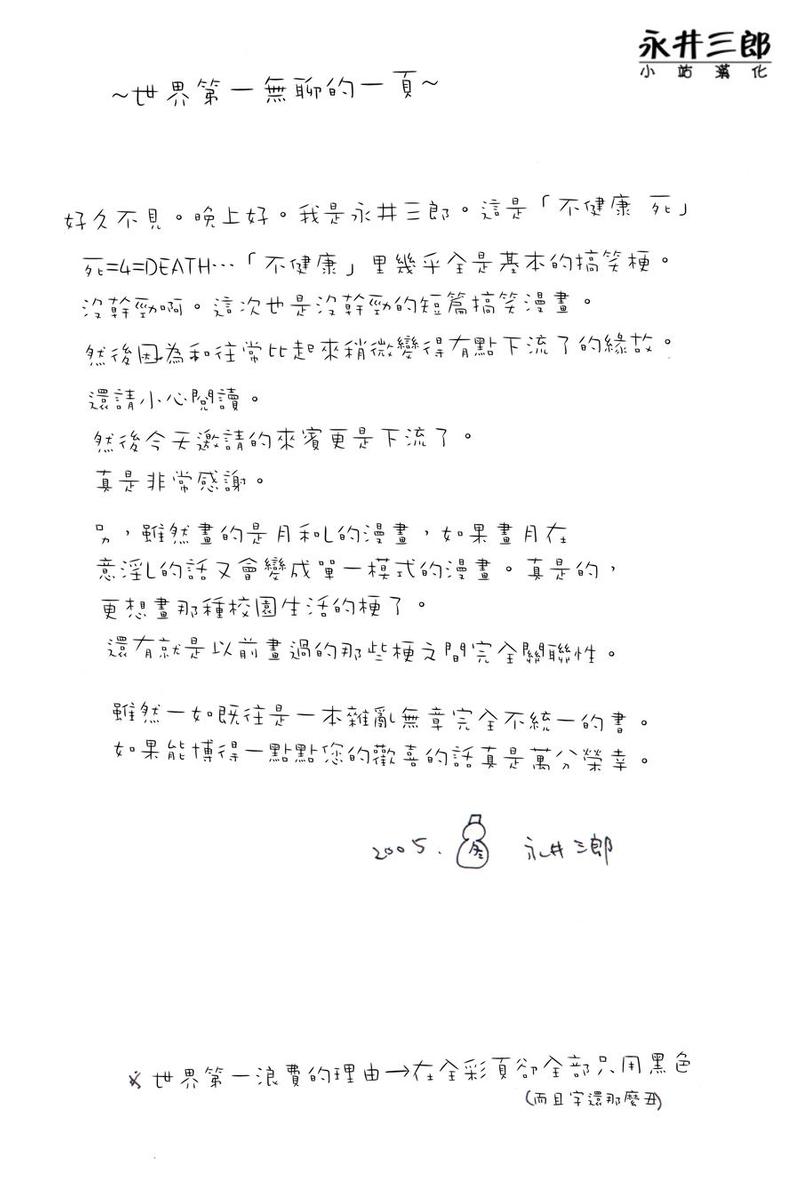 永井三郎
小站漢化
~世界第一無聊的一頁~
好久不見。晚上好。我是永井三郎。這是「不健康 死」
死=4=DEATH…「不健康」里幾乎全是基本的搞笑梗。
沒幹勁啊。這次也是沒幹勁的短篇搞笑漫畫。
然後因為和往常比起來稍微變得有點下流了的緣故。
還請小心閱讀。
然後今天邀請的來賓更是下流了。
真是非常感謝。
另,雖然畫的是月和L的漫畫,如果畫月在
意淫L的話又會變成單一模式的漫畫。真是的,
更想畫那種校園生活的梗了。
還有就是以前畫過的那些梗之間完全關聯性。
雖然一如既往是一本雜亂無章完全不統一的書。
如果能博得一點點您的歡喜的話真是萬分榮幸。
2005. 冬 永井三郎
※世界第一浪費的理由→在全彩頁卻全部只用黑色
(而且字還那麼丑)